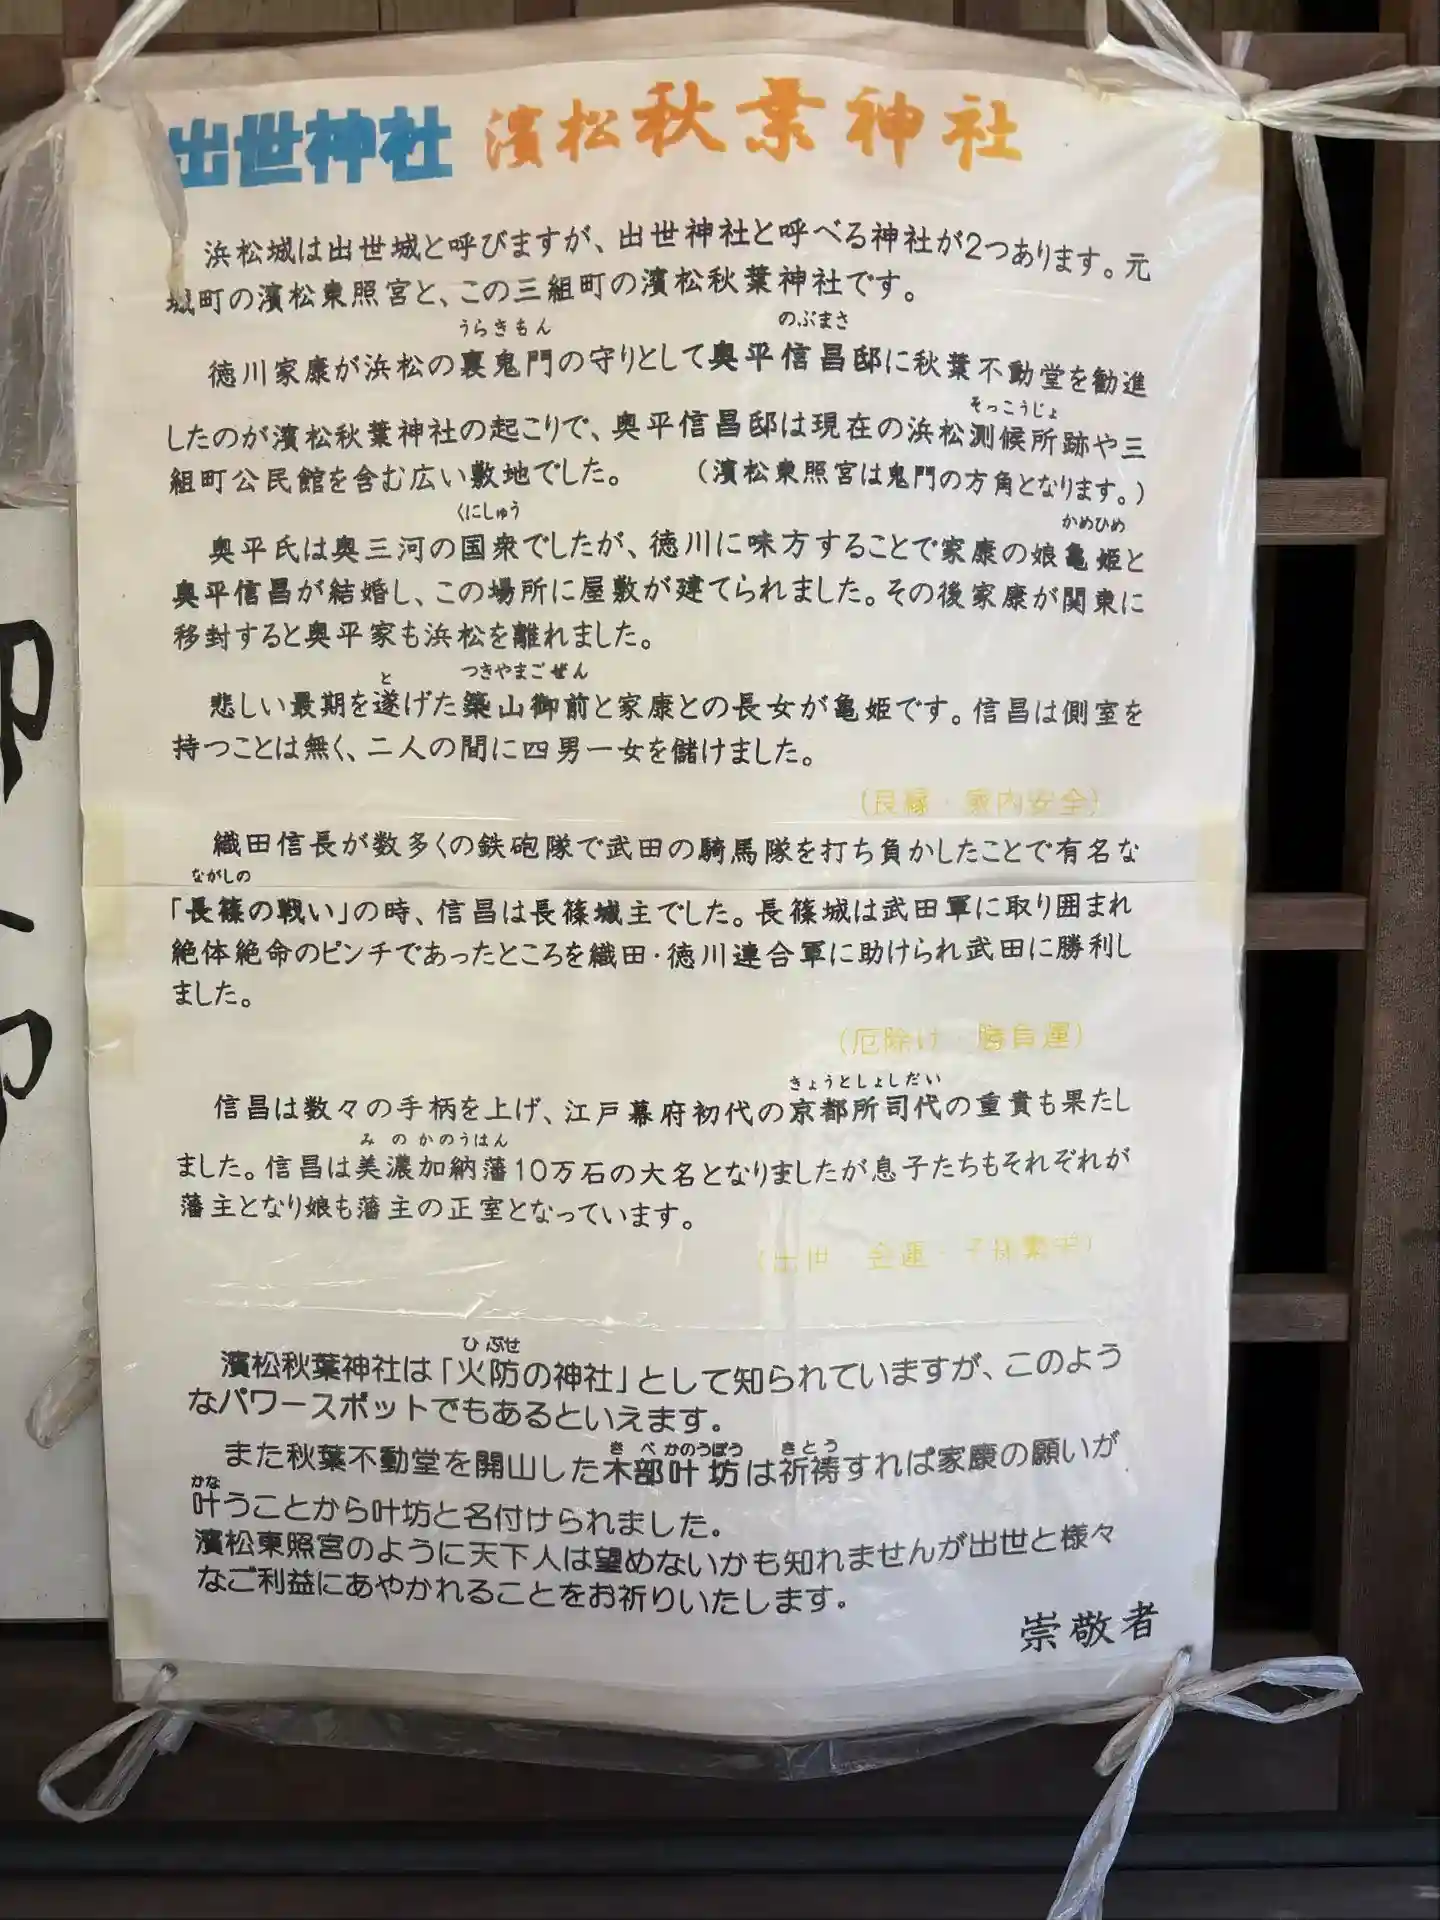 出世神社 濱松秋葉神社
浜松城は出世城と呼びますが、出世神社と呼べる神社が2つあります。元
城町の濱松東照宮と、この三組町の濱松秋葉神社です。
うらきもん のぶまさ
徳川家康が浜松の裏鬼門の守りとして奥平信昌邸に秋葉不動堂を勧進
そっこうじょ
したのが濱松秋葉神社の起こりで、奥平信昌邸は現在の浜松測候所跡や三
組町公民館を含む広い敷地でした。 (濱松東照宮は鬼門の方角となります。)
くにしゅう かめひめ
奥平氏は奥三河の国衆でしたが、徳川に味方することで家康の娘亀姫と
奥平信昌が結婚し、この場所に屋敷が建てられました。その後家康が関東に
移封すると奥平家も浜松を離れました。
と つきやまごぜん
悲しい最期を遂げた築山御前と家康との長女が亀姫です。信昌は側室を
持つことは無く、二人の間に四男一女を儲けました。
(良縁・家内安全)
織田信長が数多くの鉄砲隊で武田の騎馬隊を打ち負かしたことで有名な
ながしの
「長篠の戦い」の時、信昌は長篠城主でした。長篠城は武田軍に取り囲まれ
絶体絶命のピンチであったところを織田・徳川連合軍に助けられ武田に勝利し
ました。
(厄除け・勝負運)
きょうとしょしだい
信昌は数々の手柄を上げ、江戸幕府初代の京都所司代の重責も果たし
みのかのうはん
ました。信昌は美濃加納藩10万石の大名となりましたが息子たちもそれぞれが
藩主となり娘も藩主の正室となっています。
(出世・金運・子孫繁栄)
ひぶせ
濱松秋葉神社は「火防の神社」として知られていますが、このよう
なパワースポットでもあるといえます。
きべかのうぼう きとう
また秋葉不動堂を開山した木部叶坊は祈祷すれば家康の願いが
かな
叶うことから叶坊と名付けられました。
濱松東照宮のように天下人は望めないかも知れませんが出世と様々
なご利益にあやかれることをお祈りいたします。
崇敬者